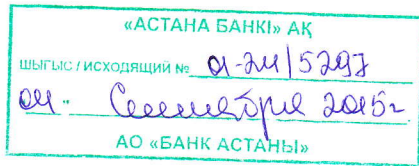 «АСТАНА БАНКІ» АҚ
ШЫҒЫС / ИСХОДЯЩИЙ № 01-24/5297
04 " Сентября 2015г
АО «БАНК АСТАНЫ»